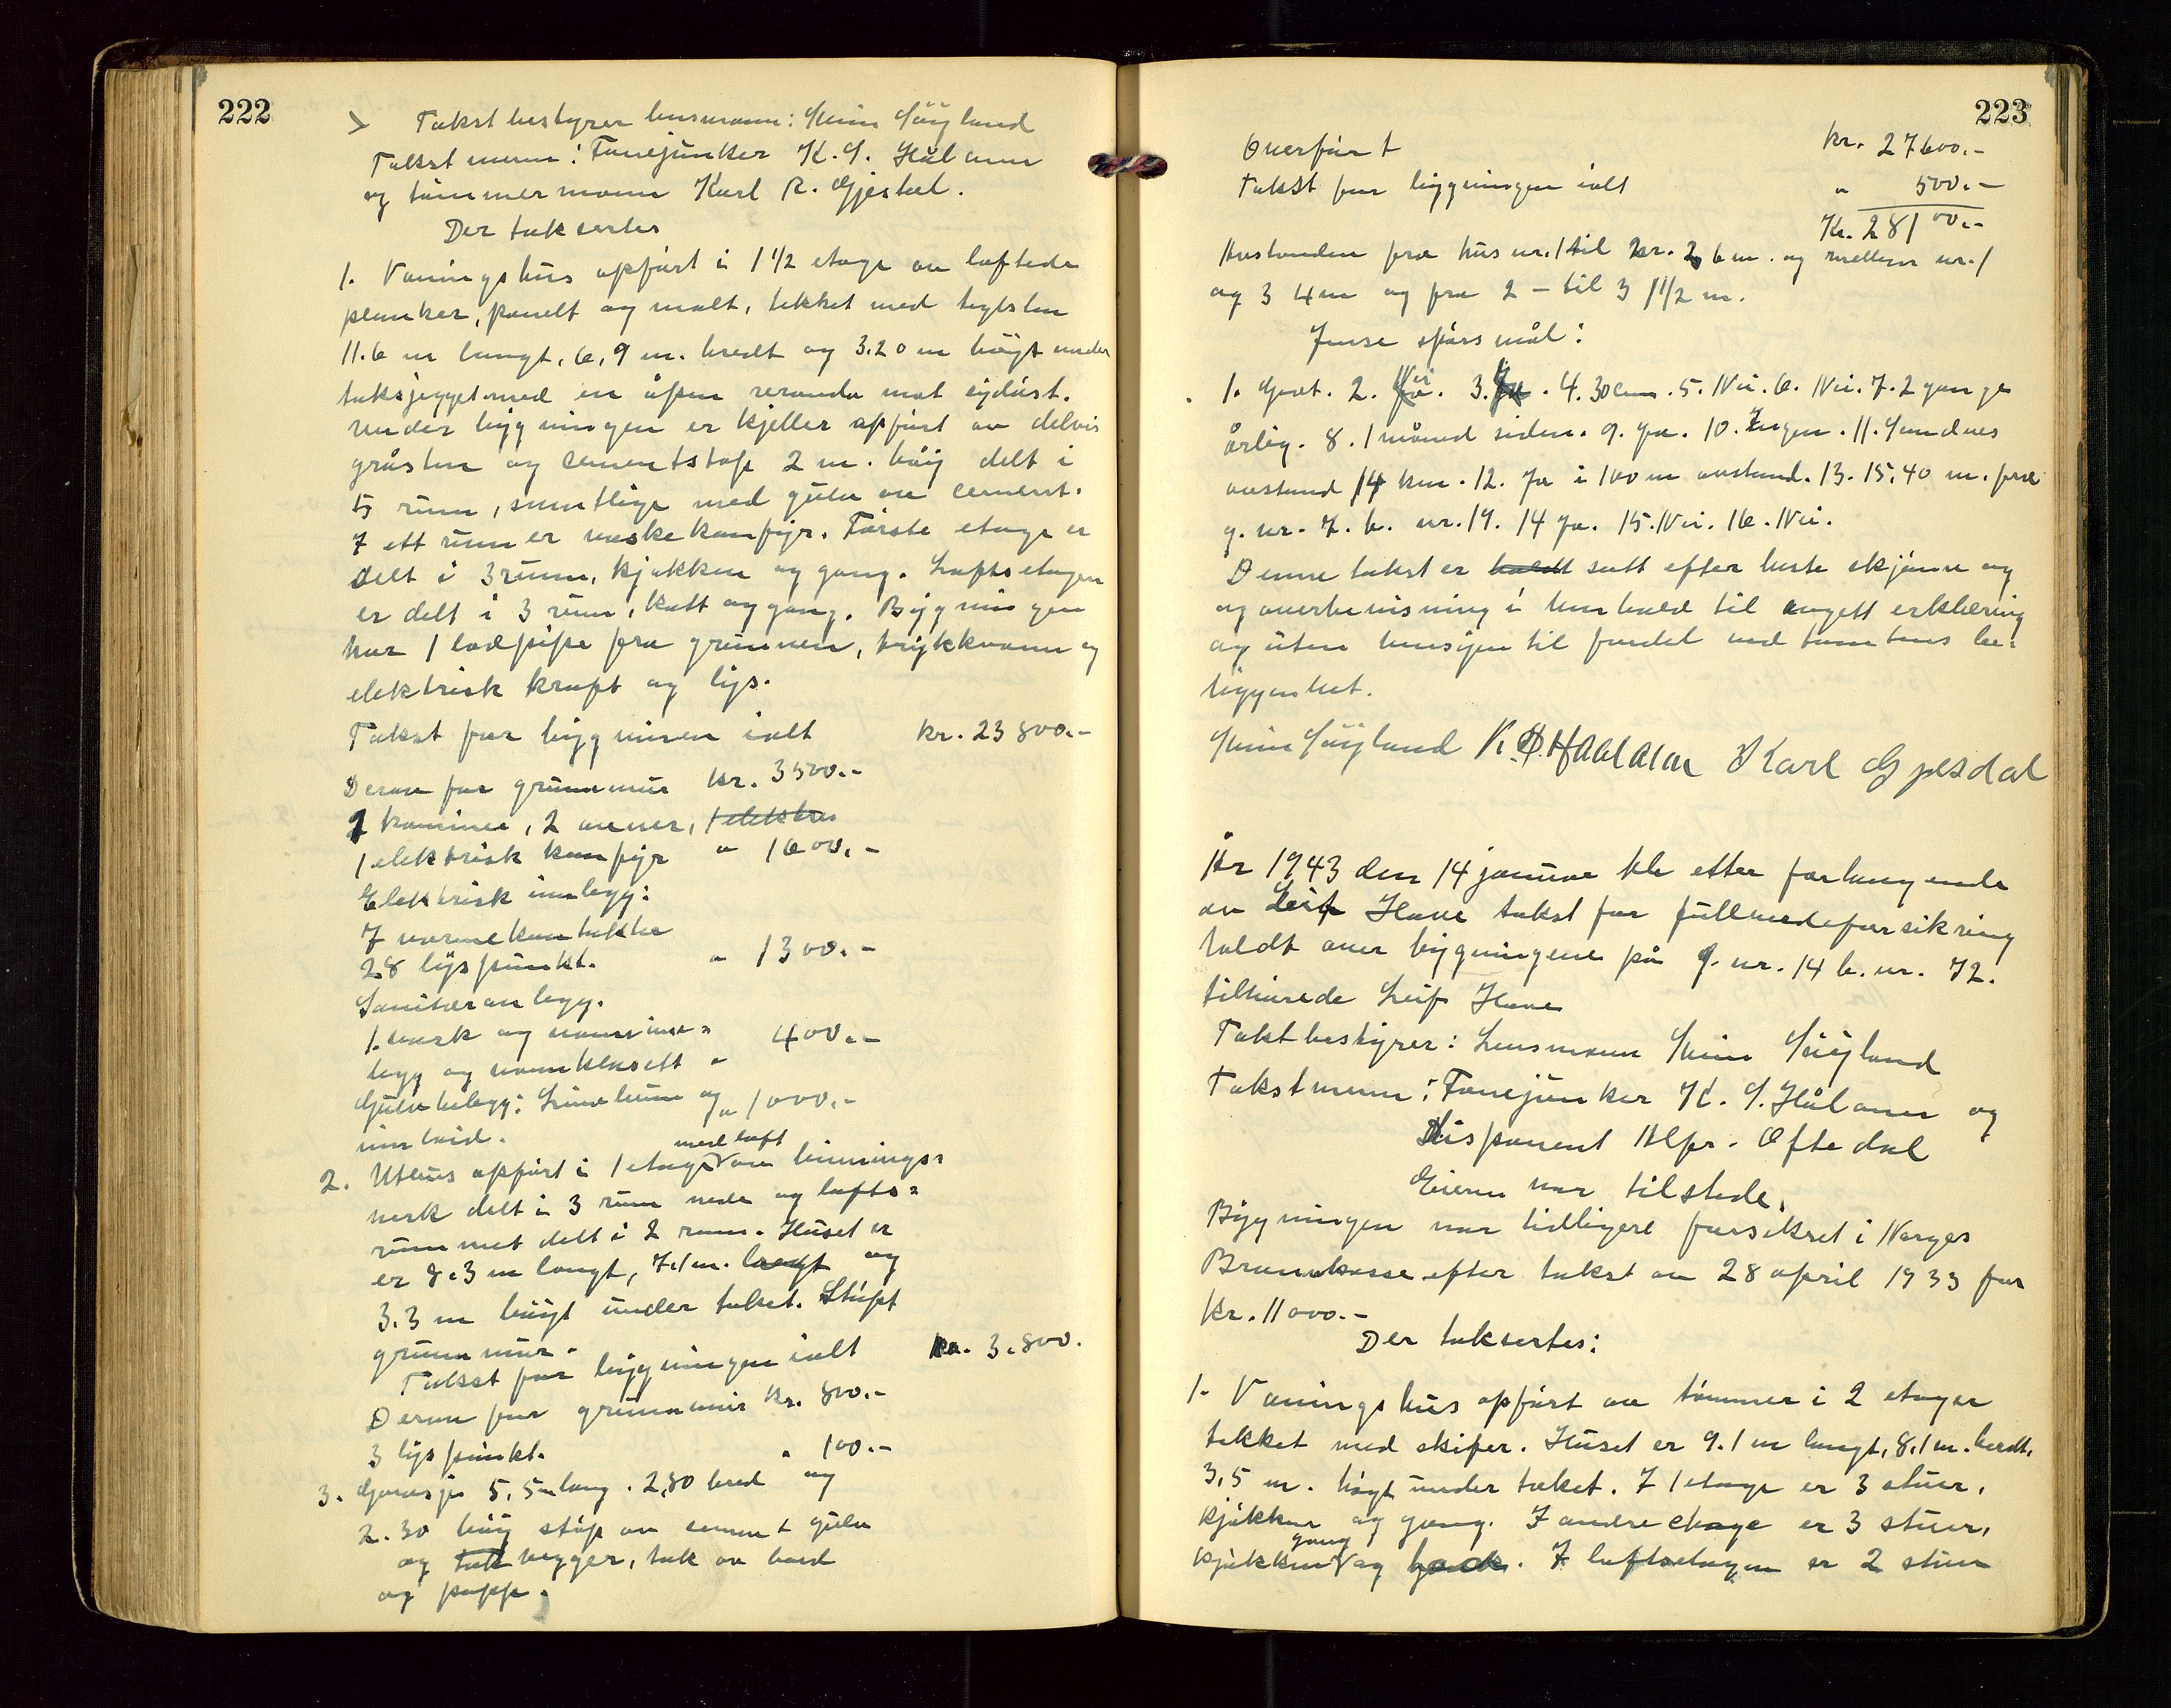 222
Takstbestyrer lensmann:
Takstmenn: Fanejunker K. S. Håland
og tømmermann Karl R. Gjesdal.
Der taksertes
1. Våningshus opført i 1 1/2 etage av laftede
planker, panelt og malt, tekket med teglsten
11.6 m langt, 6,9 m. bredt og 3.20 m høigt under
takskjegget med en åpen veranda mot sydøst.
Under bygningen er kjeller opført av delvis
gråsten og cementstøp 2 m. høi delt i
5 rum, samtlige med gulv av cement.
I ett rum er vaskekomfyr. Første etage er
delt i 3 rum, kjøkken og gang. Loftsetagen
er delt i 3 rum, kott og gang. Bygningen
har 1 lodpipe fra grunnen, trykkvann og
elektrisk kraft og lys.
Takst for bygninen ialt kr. 23 800.-
Derav for grunnmur kr. 3500.-
1 kaminer, 2 ovner, 1 elektris
1 elektrisk komfyr " 1600.-
Elektrisk innlegg:
7 varmekontakter
28 lyspunkt. " 1300.-
Sanitæranlegg.
1 vask og vanninn=
legg og vannklosett " 400.-
Gulvbelegg: Linoleum og " 1000.-
innlaid.
2. Uthus opført i 1 etage med loft av binnings=
verk delt i 3 rum nede og lofts=
rummet delt i 2 rum. Huset er
er 8.3 m langt, 7.1 m. bredt og
3.3 m høigt under taket. Støpt
grunnmur.
Takst for bygningen ialt kr. 3.800.
Derav for grunnmur kr. 800.-
3 lyspunkt. " 100.-
3. Garasje 5,5 m lang. 2,80 bred og
2.30 høi støp av cement gulv
og tak vegger, tak av bord
og papp.
223
Overført kr. 27600.-
Takst for bygningen ialt " 500.-
Kr. 28100.-
Avstanden fra hus nr. 1 til nr. 2, 6 m. og mellem nr. 1
og 3 4 m og fra 2 - til 3 1 1/2 m.
Jevse spørsmål:
1. Godt. 2. Nei. 3. Ja. 4. 30 cm. 5. Nei. 6. Nei. 7. 2 gange
årlig. 8. 1 måned siden. 9. Ja. 10. Ingen. 11. Sandnes
avstand 14 km. 12. Ja i 100 m avstand. 13. 15,40 m. fra
g. nr. 7. b. nr. 19. 14 Ja. 15. Nei. 16. Nei.
Denne takst er holdt satt efter beste skjønn og
og overbevisning i henhold til avgett erklæring
og uten hensyn til fordel ved tomtens be=
liggenhet.
K. S. Haaland Karl Gjesdal
År 1943 den 14 januar ble etter forlangende
av Leif Have takst for fullverdeforsikring
holdt over bygningene på g. nr. 14 b. nr. 72.
tilhørede Leif Have
Takstbestyrer: Lensmann
Takstmenn: Fanejunker K. S. Håland og
Disponent Alfr. Oftedal
Eieren var tilstede.
Bygningen var tidligere forsikret i Norges
Brannkasse efter takst av 28 april 1933 for
kr. 11000.-
Der taksertes:
1. Våningshus opført av tømmer i 2 etager
tekket med skifer. Huset er 9.1 m langt, 8,1 m. bredt,
3,5 m. høgt under taket. I 1 etage er 3 stuer,
kjøkken og gang. I andre etage er 3 stuer,
kjøkken gang og . I loftsetagen er 2 stuer